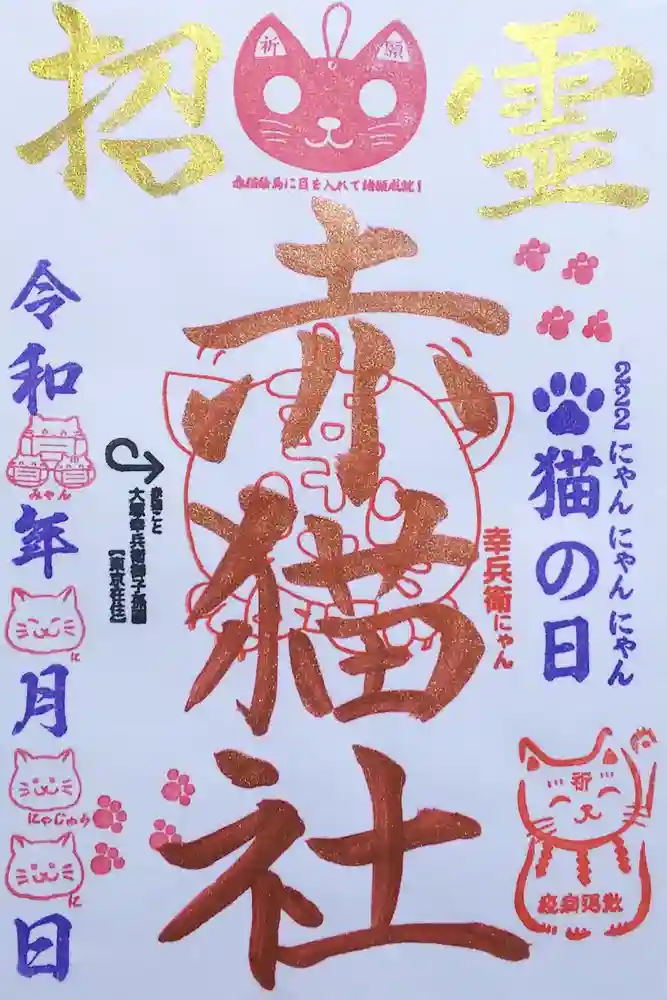 招
霊
祈 願
赤猫絵馬に目を入れて諸願成就!
222 にゃん にゃん にゃん
猫の日
幸兵衛にゃん
赤猫社
大塚幸兵衛
【東京在住】
令和
みゃん
年
に
月
にゃじゅう
に
日
祈
疫病退散